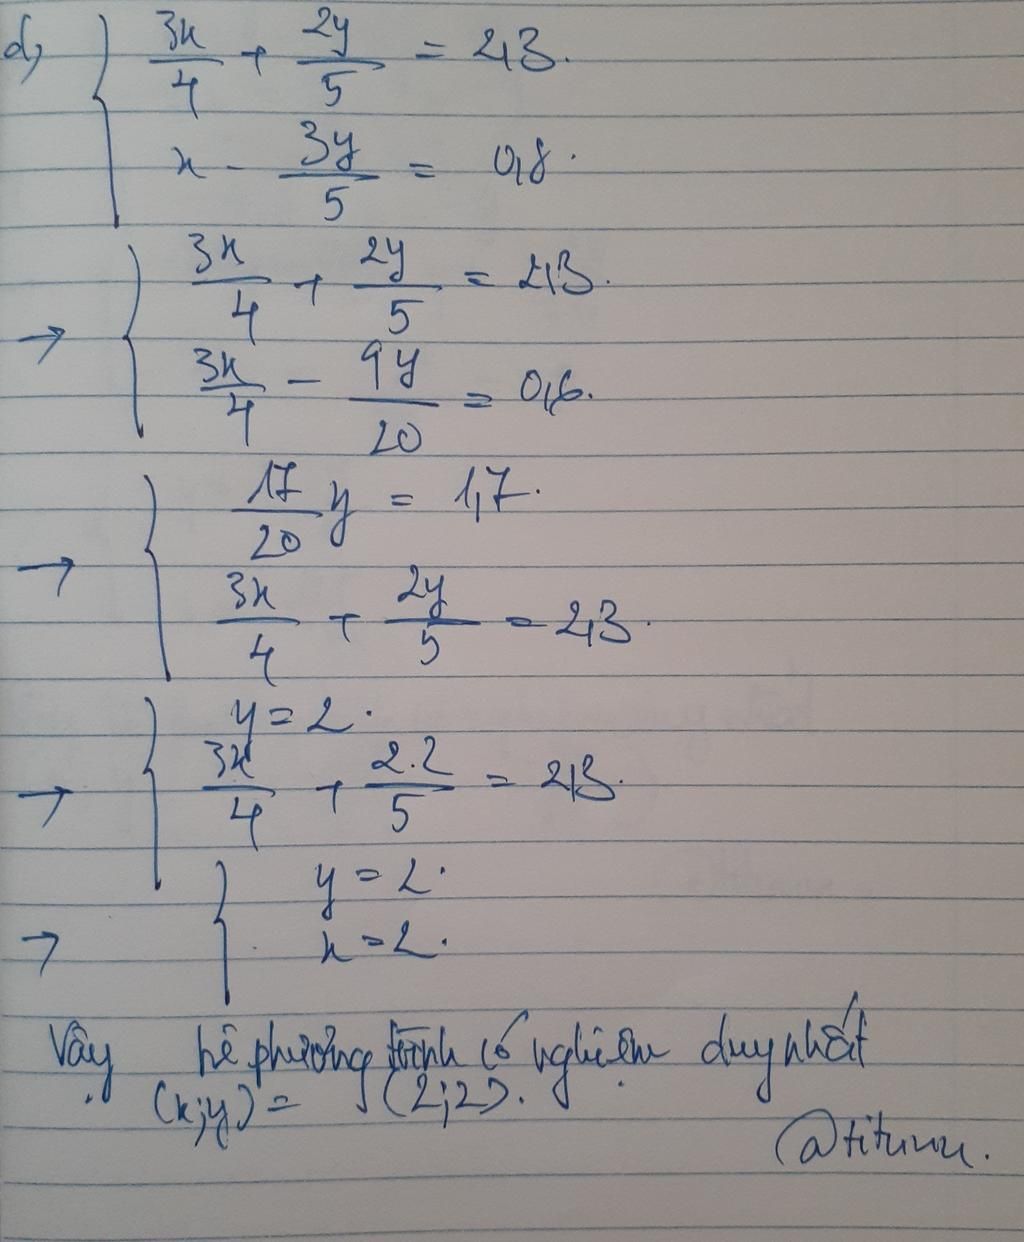 d,
3x/4 + 2y/5 = 2,3.
x - 3y/5 = 0,8.
→ 3x/4 + 2y/5 = 2,3.
3x/4 - 9y/20 = 0,6.
→ 17/20 y = 1,7.
3x/4 + 2y/5 = 2,3.
→ y = 2.
3x/4 + 2.2/5 = 2,3.
→ y = 2.
x = 2.
Vậy hệ phương trình có nghiệm duy nhất
(x;y) = (2;2).